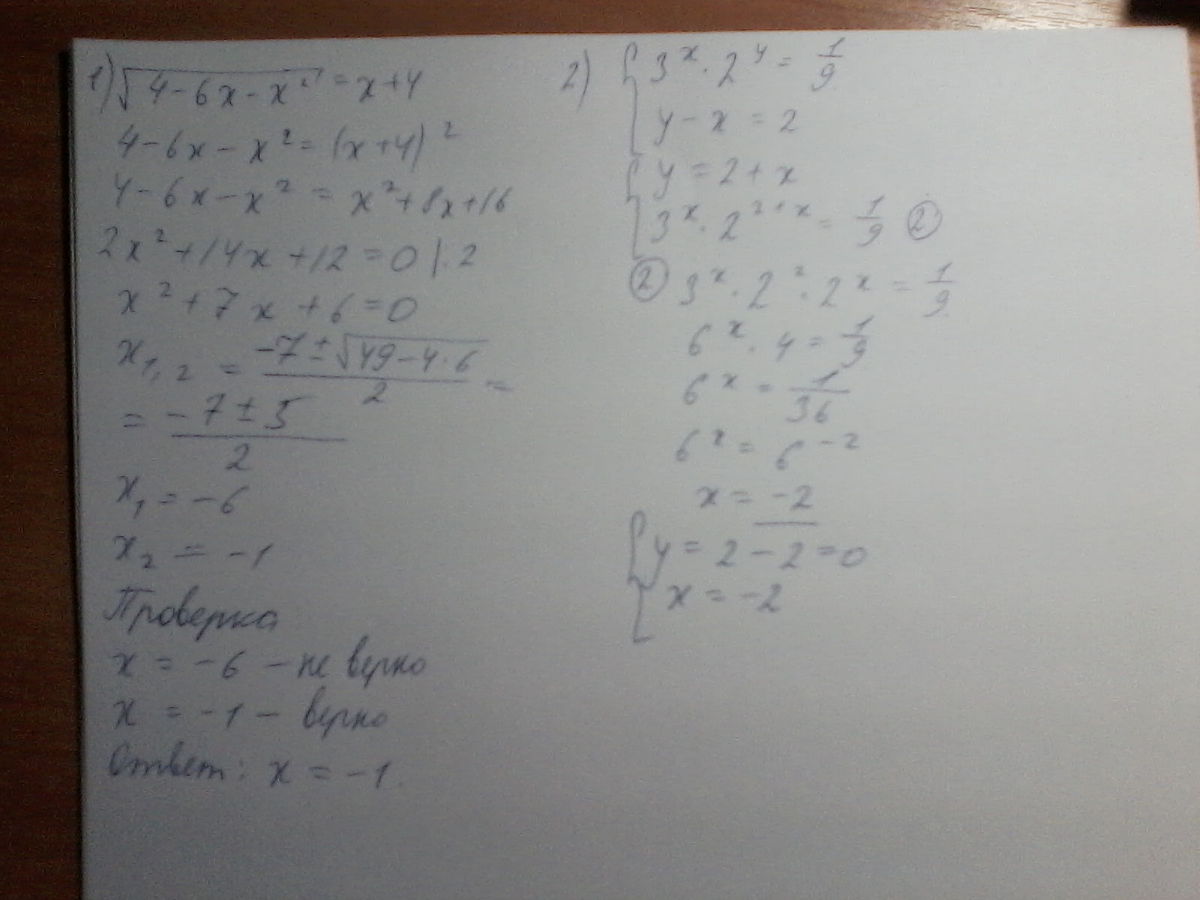 1) √(4-6x-x²) = x+4
4-6x-x² = (x+4)²
4-6x-x² = x²+8x+16
2x²+14x+12=0 |:2
x²+7x+6=0
x₁,₂ = (-7±√(49-4·6))/2 =
= (-7±5)/2
x₁ = -6
x₂ = -1
Проверка
x = -6 - не верно
x = -1 - верно
Ответ: x = -1.
2) { 3ˣ·2ʸ = 1/9
y-x = 2
{ y = 2+x
3ˣ·2²⁺ˣ = 1/9 ②
② 3ˣ·2²·2ˣ = 1/9
6ˣ·4 = 1/9
6ˣ = 1/36
6ˣ = 6⁻²
x = -2
{ y = 2-2=0
x = -2